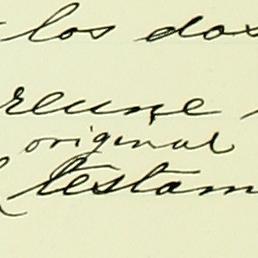 los dos
reune
original
testam